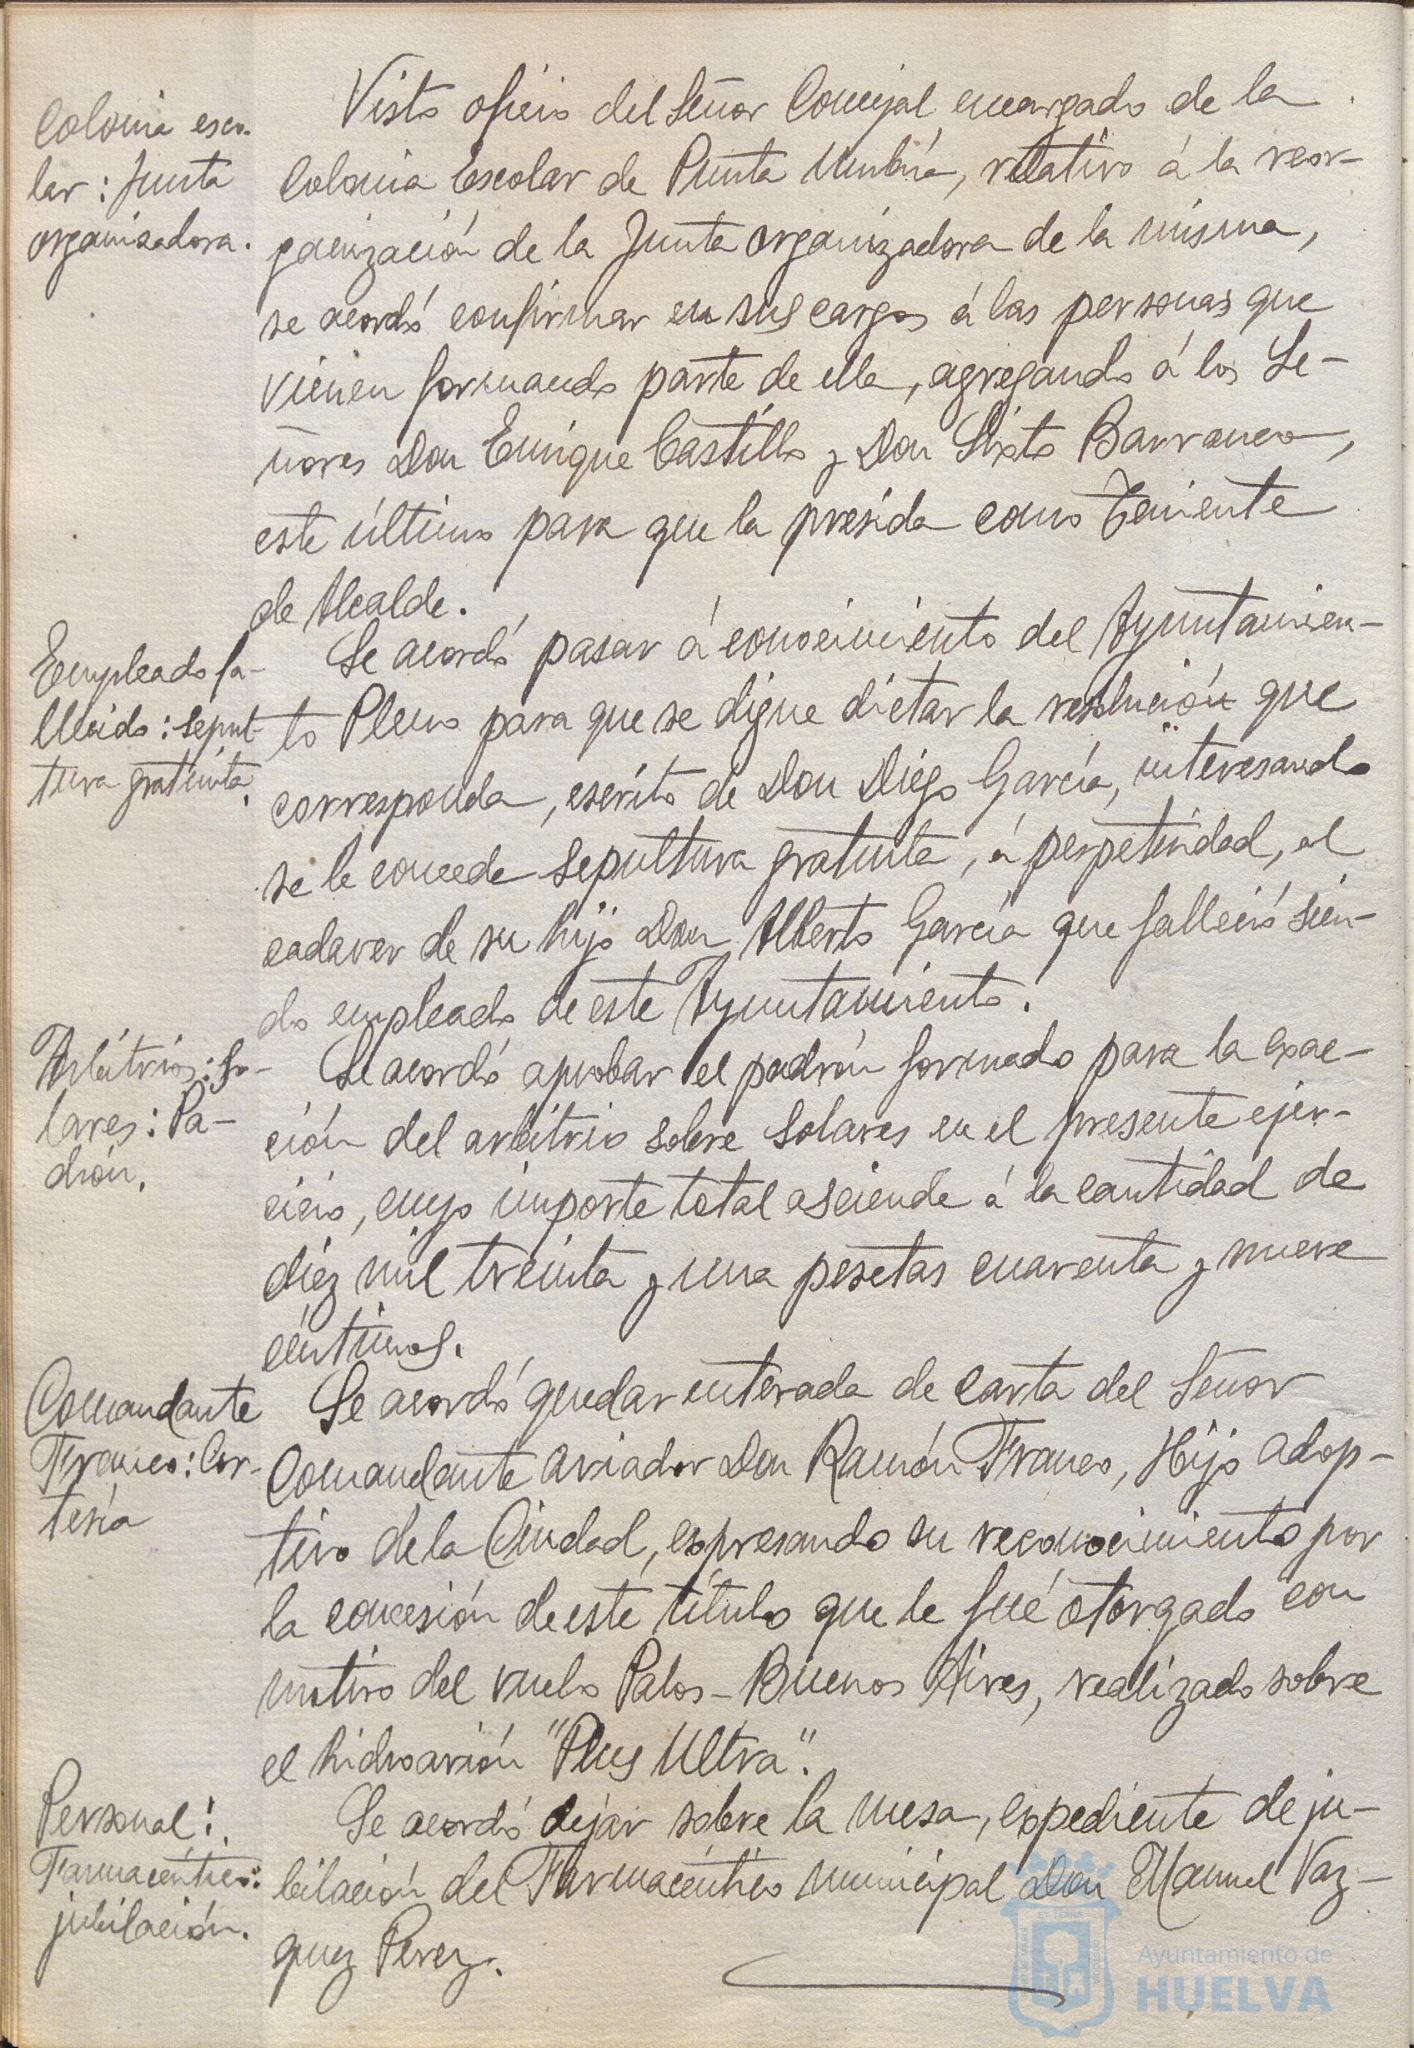 Colonia esco-
lar: Junta
organizadora.
Visto oficio del Señor Concejal encargado de la
Colonia Escolar de Punta Umbría, relativo á la reor-
ganización de la Junta organizadora de la misma,
se acordó confirmar en sus cargos á las personas que
vienen formando parte de ella, agregando á los Se-
ñores Don Enrique Castillo y Don Sixto Barranco,
este último para que la presida como Teniente
de Alcalde.
Empleado fa-
llecido: sepul-
tura gratuita.
Se acordó pasar á conocimiento del Ayuntamien-
to Pleno para que se digne dictar la resolución que
corresponda, escrito de Don Diego García, interesando
se le concede sepultura gratuita, á perpetuidad, al
cadaver de su hijo Don Alberto García que falleció sien-
do empleado de este Ayuntamiento.
Arbitrios: So-
lares: Pa-
drón.
Se acordó aprobar el padrón formado para la exac-
ción del arbitrio sobre Solares en el presente ejer-
cicio, cuyo importe total asciende á la cantidad de
diez mil treinta y una pesetas cuarenta y nueve
céntimos.
Comandante
Franco: Cor-
tesía
Se acordó quedar enterada de carta del Señor
Comandante aviador Don Ramón Franco, Hijo adop-
tivo de la Ciudad, expresando su reconocimiento por
la concesión de este título que le fué otorgado con
motivo del vuelo Palos-Buenos Aires, realizado sobre
el hidroavión "Plus Ultra".
Personal:
Farmacéutico:
jubilación.
Se acordó dejar sobre la mesa, expediente de ju-
bilación del Farmacéutico municipal Don Manuel Vaz-
quez Perez.
Ayuntamiento de
HUELVA